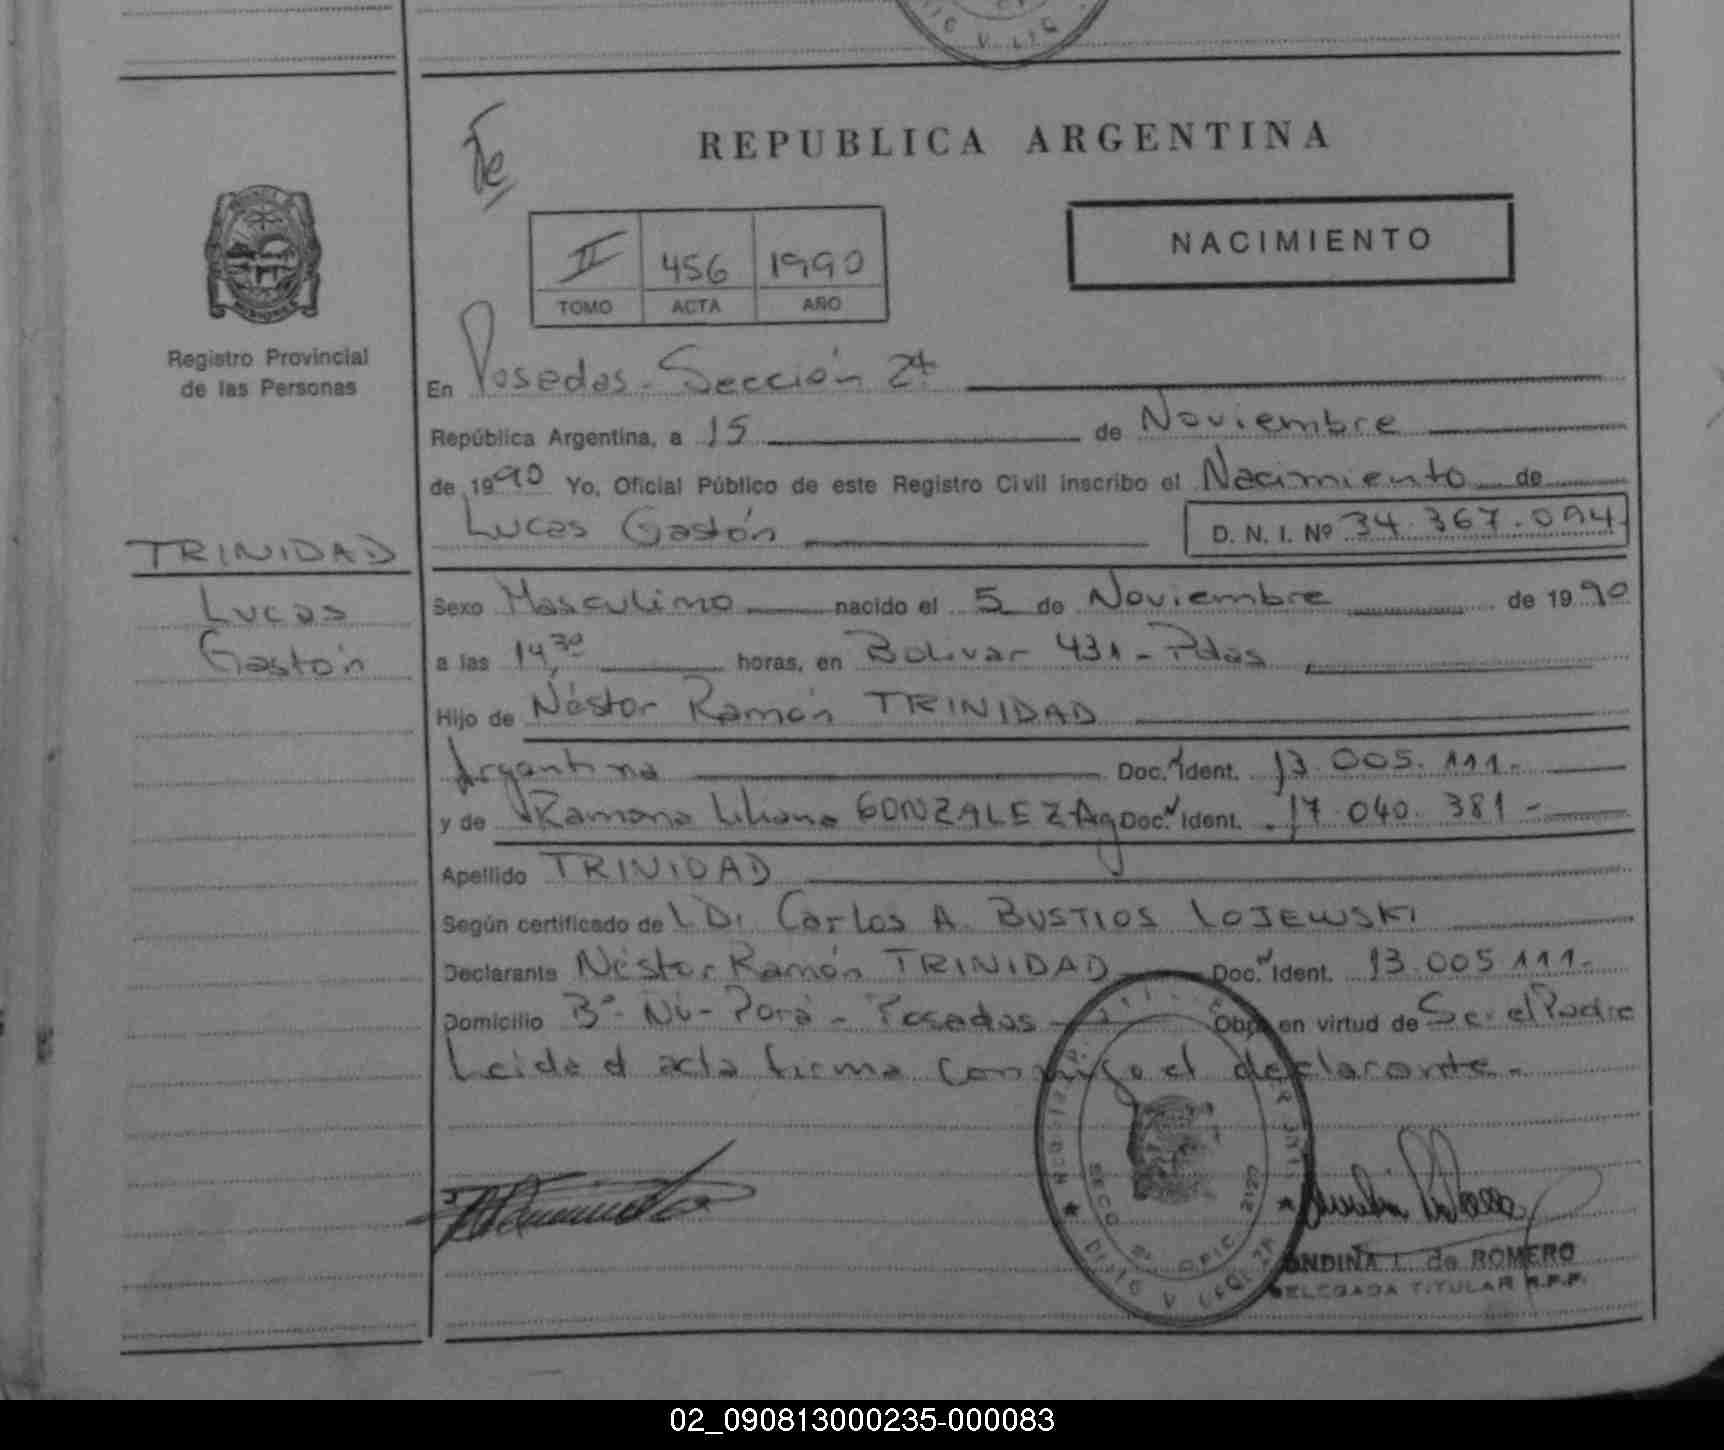 Te
REPUBLICA ARGENTINA
NACIMIENTO
II 456 1990
TOMO ACTA AÑO
Registro Provincial
de las Personas
En Posadas - Sección 2ª
República Argentina, a 15 de Noviembre
de 1990 Yo, Oficial Público de este Registro Civil inscribo el Nacimiento de
Lucas Gastón D. N. I. Nº 34.367.094
TRINIDAD
Lucas
Gastón
Sexo Masculino nacido el 5 de Noviembre de 1990
a las 14,30 horas, en Bolivar 431 - Pdas
Hijo de Néstor Ramón TRINIDAD
Argentina Doc. Ident. 13.005.111-
y de Ramona Liliana GONZALEZ Ag Doc. Ident. 17.040.381-
Apellido TRINIDAD
Según certificado de LDr Carlos A. BUSTIOS LOJEWSKI
Declarante Néstor Ramón TRINIDAD Doc. Ident. 13.005.111-
Domicilio Bº Ñu-Porá - Posadas Obra en virtud de Ser el Padre
Leida el acta firma conmigo el declarante.-
ONDINA L. de ROMERO
DELEGADA TITULAR R.P.P.
02_090813000235-000083